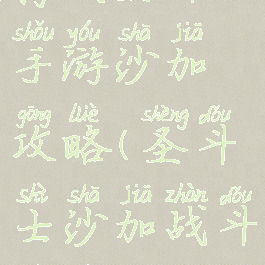 shǒu yóu shā jiā
手游沙加
gōng lüè shèng dòu
攻略(圣斗
shì shā jiā zhàn dòu
士沙加战斗